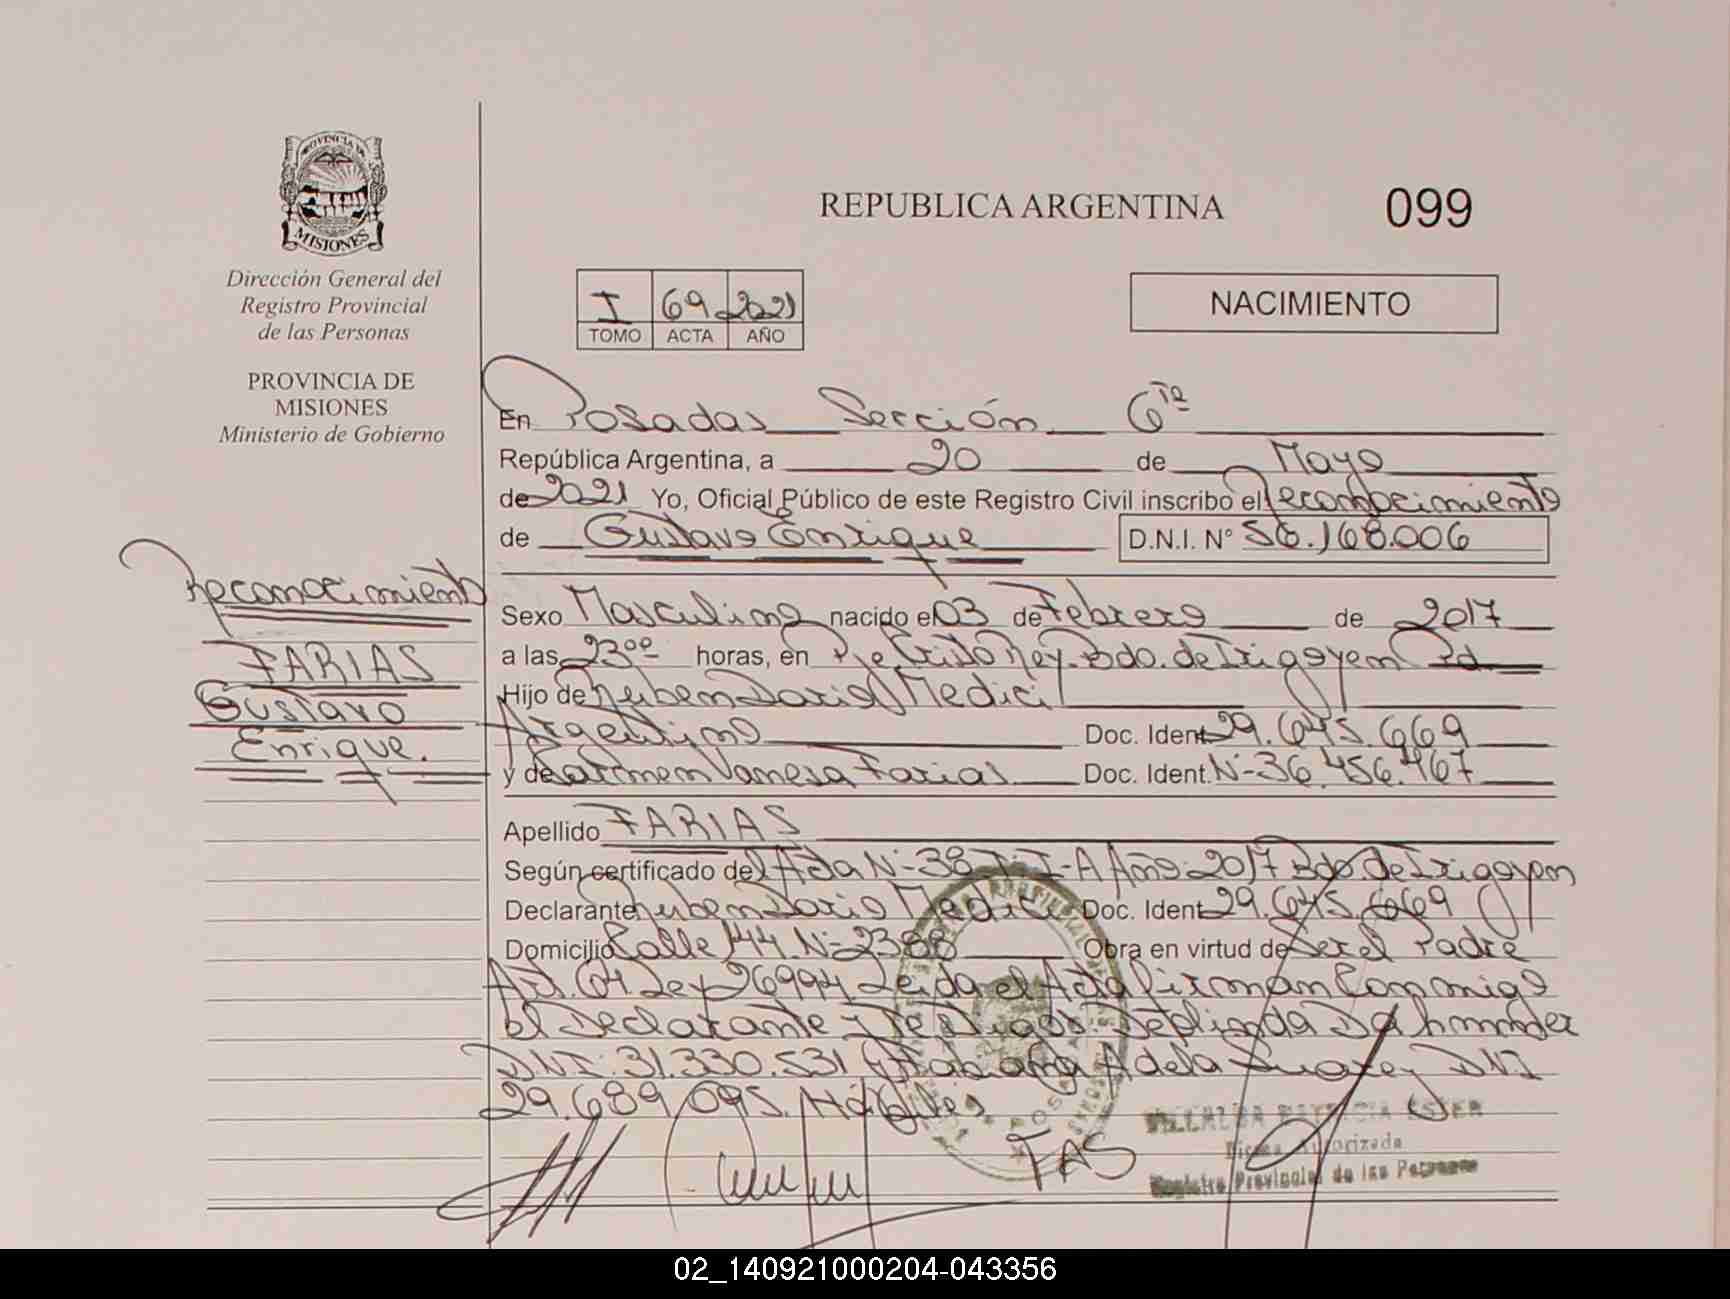 PROVINCIA DE
MISIONES
Dirección General del
Registro Provincial
de las Personas
PROVINCIA DE
MISIONES
Ministerio de Gobierno
REPUBLICA ARGENTINA
099
I 69 2021
TOMO ACTA AÑO
NACIMIENTO
En Posadas Sección 6ta
República Argentina, a 20 de Mayo
de 2021 Yo, Oficial Público de este Registro Civil inscribo el Reconocimiento
de Gustavo Enrique D.N.I. N° 56.168.006
Reconocimiento
FARIAS
Gustavo
Enrique.
Sexo Masculino nacido el 03 de Febrero de 2017
a las 23°° horas, en Pje Cristo Rey. Bdo. de Irigoyen
Hijo de Ruben Dario Medici
Argentino Doc. Ident. 29.645.669
y de Carmen Vanesa Farias Doc. Ident. N-36.456.467
Apellido FARIAS
Según certificado del Acta N-38 T:I-A Año 2017 Bdo. de Irigoyen
Declarante Ruben Dario Medici Doc. Ident 29.645.669
Domicilio Calle 144 N-2388 Obra en virtud de Ser el Padre
Art. 64 Ley 26994. Leida el Acta firman Conmigo
el Declarante y Testigos: Deolinda
DNI: 31.330.531 y Fabiana Adela DNI
29.689.095. Hábiles
FAS
VILLALBA PATRICIA ESTER
Firma Autorizada
Registro Provincial de las Personas
02_140921000204-043356